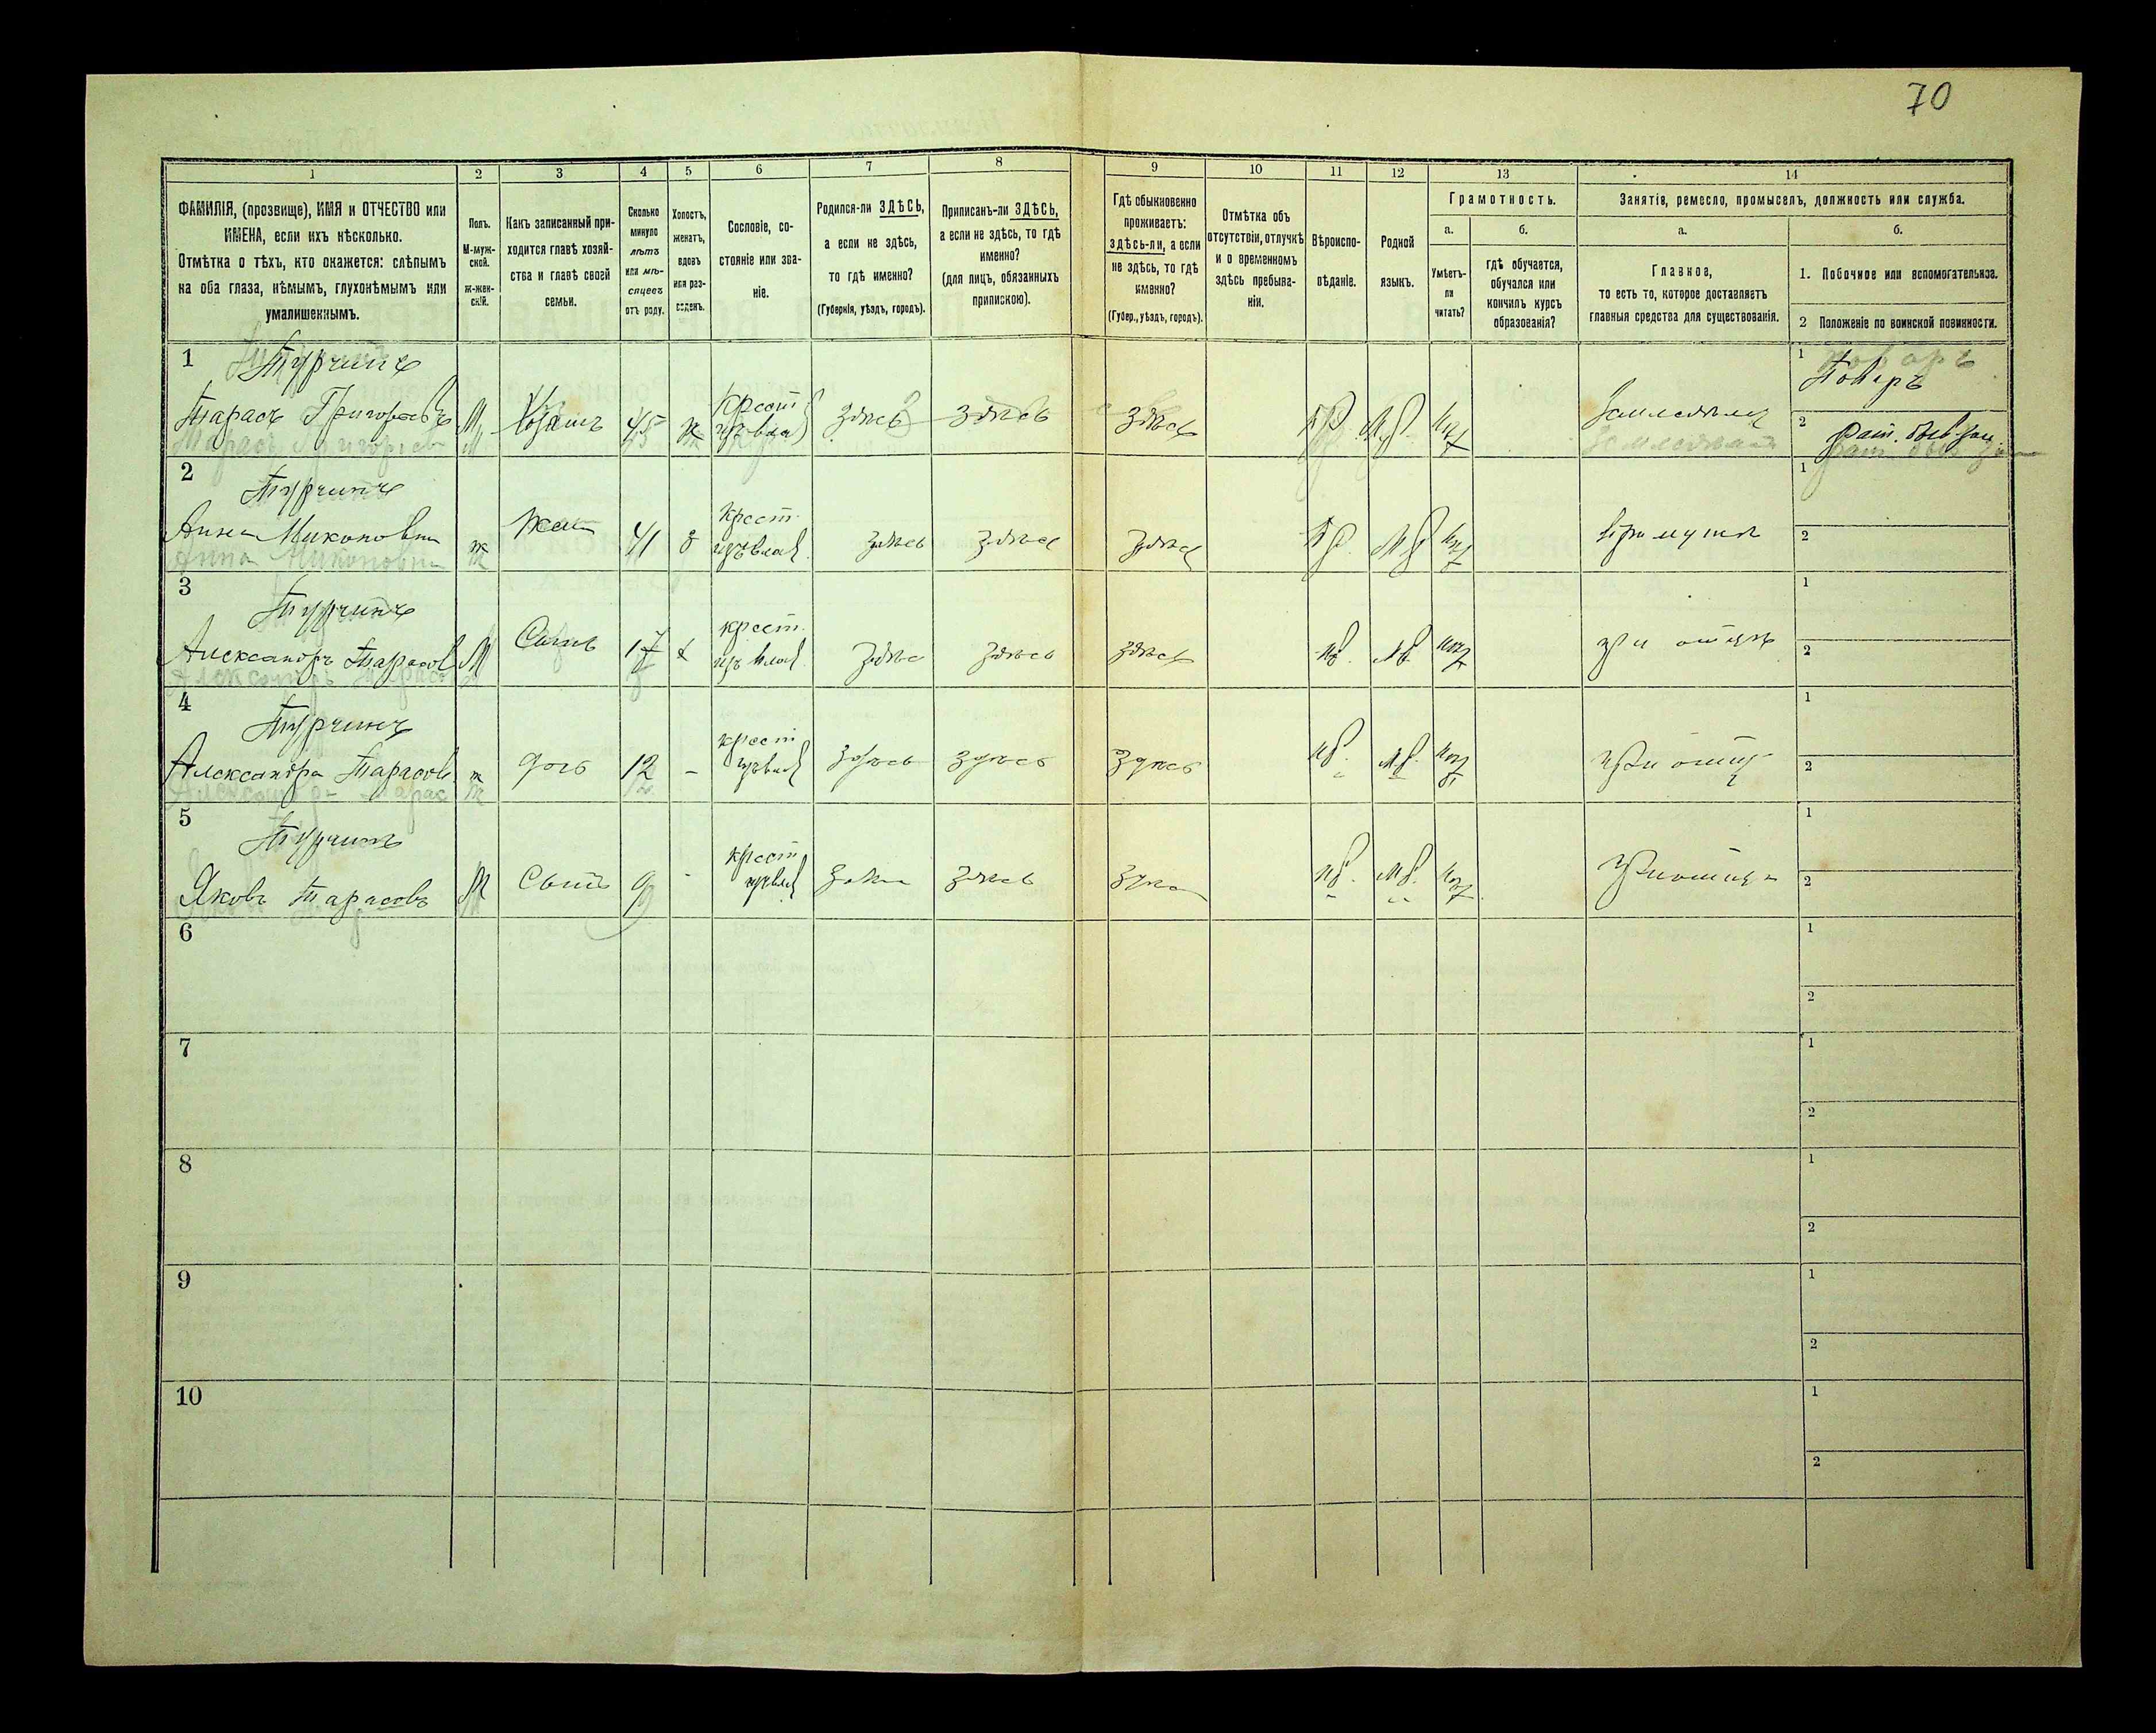 70
1 2 3 4 5 6 7 8 9 10 11 12 13 14
ФАМИЛІЯ, (прозвище), ИМЯ и ОТЧЕСТВО или
ИМЕНА, если ихъ нѣсколько.
Отмѣтка о тѣхъ, кто окажется: слѣпымъ
на оба глаза, нѣмымъ, глухонѣмымъ или
умалишеннымъ.
Полъ.
М-муж-
ской.
ж-жен-
скій.
Какъ записанный при-
ходится главѣ хозяй-
ства и главѣ своей
семьи.
Сколько
минуло
лѣтъ
или мѣ-
сяцевъ
отъ роду.
Холостъ,
женатъ,
вдовъ
или раз-
веденъ.
Сословіе, со-
стояніе или зва-
ніе.
Родился-ли ЗДѢСЬ,
а если не здѣсь,
то гдѣ именно?
(Губернія, уѣздъ, городъ).
Приписанъ-ли ЗДѢСЬ,
а если не здѣсь, то гдѣ
именно?
(для лицъ, обязанныхъ
припискою).
Гдѣ обыкновенно
проживаетъ:
здѣсь-ли, а если
не здѣсь, то гдѣ
именно?
(Губер., уѣздъ, городъ).
Отмѣтка объ
отсутствіи, отлучкѣ
и о временномъ
здѣсь пребыва-
ніи.
Вѣроиспо-
вѣданіе.
Родной
языкъ.
Грамотность.
а.
Умѣетъ-
ли
читать?
б.
гдѣ обучается,
обучался или
кончилъ курсъ
образованія?
Занятіе, ремесло, промыселъ, должность или служба.
а.
Главное,
то есть то, которое доставляетъ
главныя средства для существованія.
б.
1. Побочное или вспомогательное.
2 Положеніе по воинской повинности.
1 Турчинъ
Тарасъ Григорьевъ М Хозяинъ 45 ж крест. изъ влад. здѣсь здѣсь здѣсь Пр. Мр. нѣт Земледѣлец
1 Поваръ
2 рат.
2 Турчинъ
Анна Никоновна ж жена 41 з крест. изъ влад. здѣсь здѣсь здѣсь Пр. Мр. нѣт при мужѣ
1
2
3 Турчинъ
Александръ Тарасов М Сынъ 17 х крест. изъ влад. здѣсь здѣсь здѣсь пр. Мр. нѣт при отцѣ
1
2
4 Турчинъ
Александра Тарасов. ж дочь 12 - крест. изъ влад. здѣсь здѣсь здѣсь пр. мр. нѣт при отцѣ
1
2
5 Турчинъ
Яковъ Тарасовъ М Сынъ 9 - крест. изъ влад. здѣсь здѣсь здѣсь пр. мр. нѣт при отцѣ
1
2
6
1
2
7
1
2
8
1
2
9
1
2
10
1
2